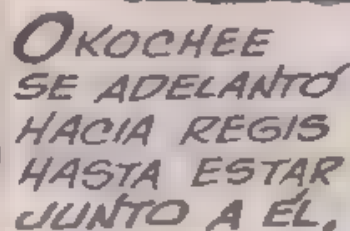 OKOCHEE
SE ADELANTÓ
HACIA REGIS
HASTA ESTAR
JUNTO A ÉL.